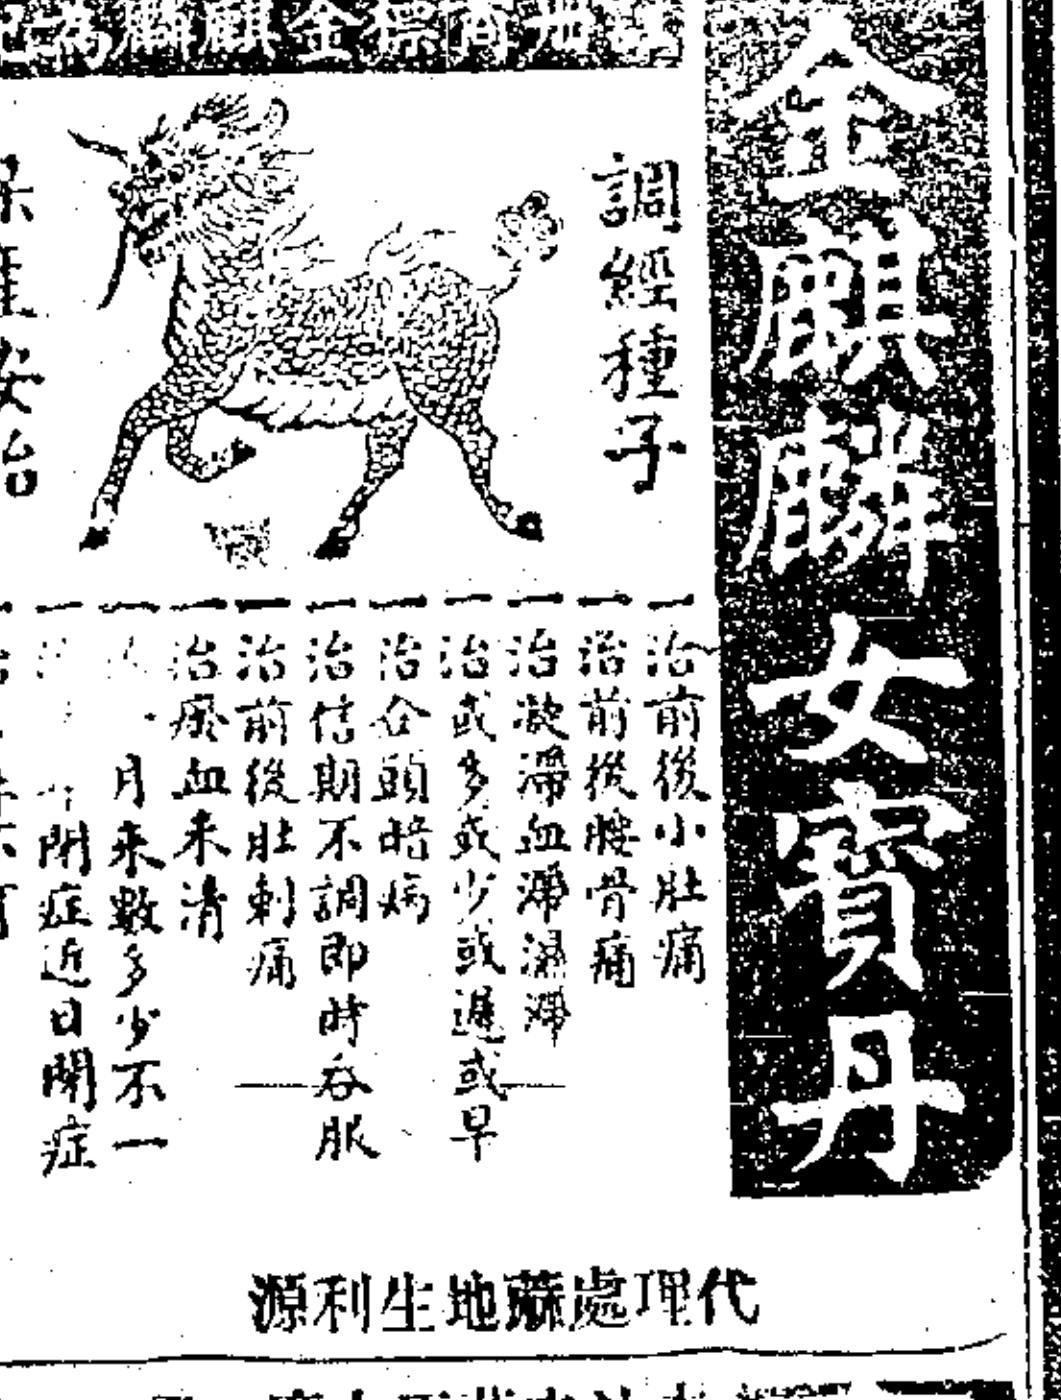 金麒麟女寶丹
註冊商標金麒麟為記
調經種子
安胎
一治前後小肚痛
一治前後腰骨痛
一治凝滯血滯濕滯
一治或多或少或遲或早
一治合頭暗病
一治信期不調即時吞服
一治前後肚刺痛
一治瘀血未清
一 月來數多少不一
一 閉症近日閉症
代理處蘇地生利源